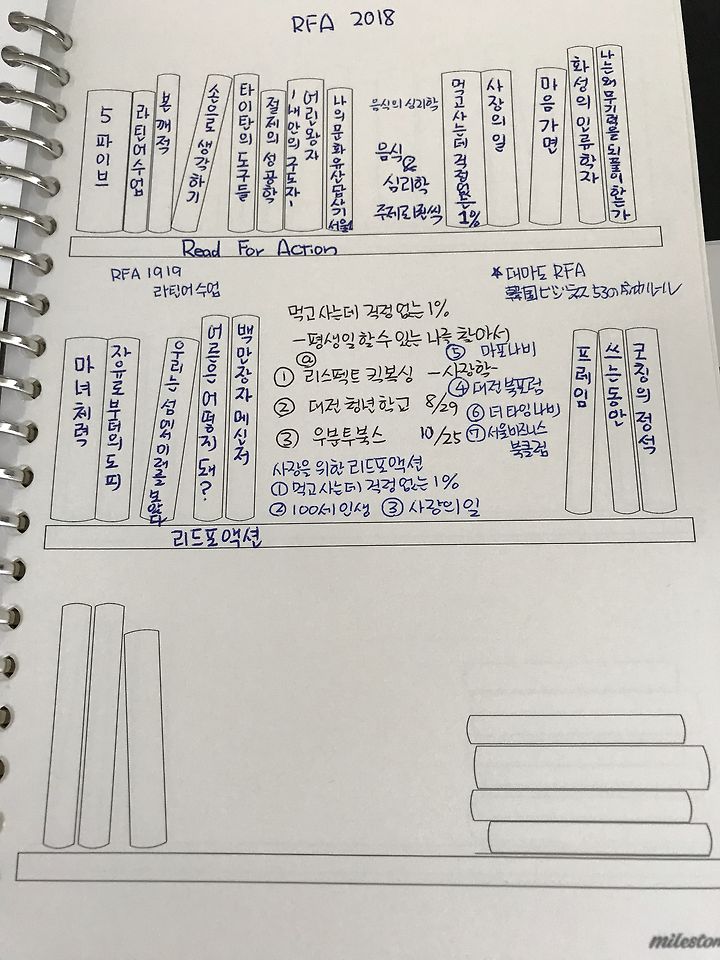 RFA 2018
5 파이브
라틴어수업
본깨적
손으로 생각하기
타이탄의 도구들
절제의 성공학
내안의 구도자
어린왕자
나의 문화유산답사기 서울
음식의 심리학
음식 & 심리학
주제로 변식
먹고사는데 걱정없는 1%
사장의 일
마음 가면
화성의 인류학자
나는 왜 무기력을 되풀이하는가
Read For Action
RFA 1919
라틴어수업
* 대마도 RFA
韓国ビジネス 53の
마녀체력
자유로부터의 도피
우리는 섬에서 미래를 보았다
어른은 어떻게 돼?
백만장자 메신저
먹고사는데 걱정없는 1%
-평생일할수 있는 나를 찾아서
@
① 리스펙트 킥복싱 -사장학-
② 대전 청년학교 8/29
③ 우분투북스 10/25
⑤ 마포나비
④ 대전 북포럼
⑥ 더 타임 나비
⑦ 서울비즈니스
북클럽
사장을 위한 리드포액션
① 먹고사는데 걱정없는 1%
② 100세인생 ③ 사장의일
프레임
쓰는동안
코칭의 정석
리드포액션
milestone